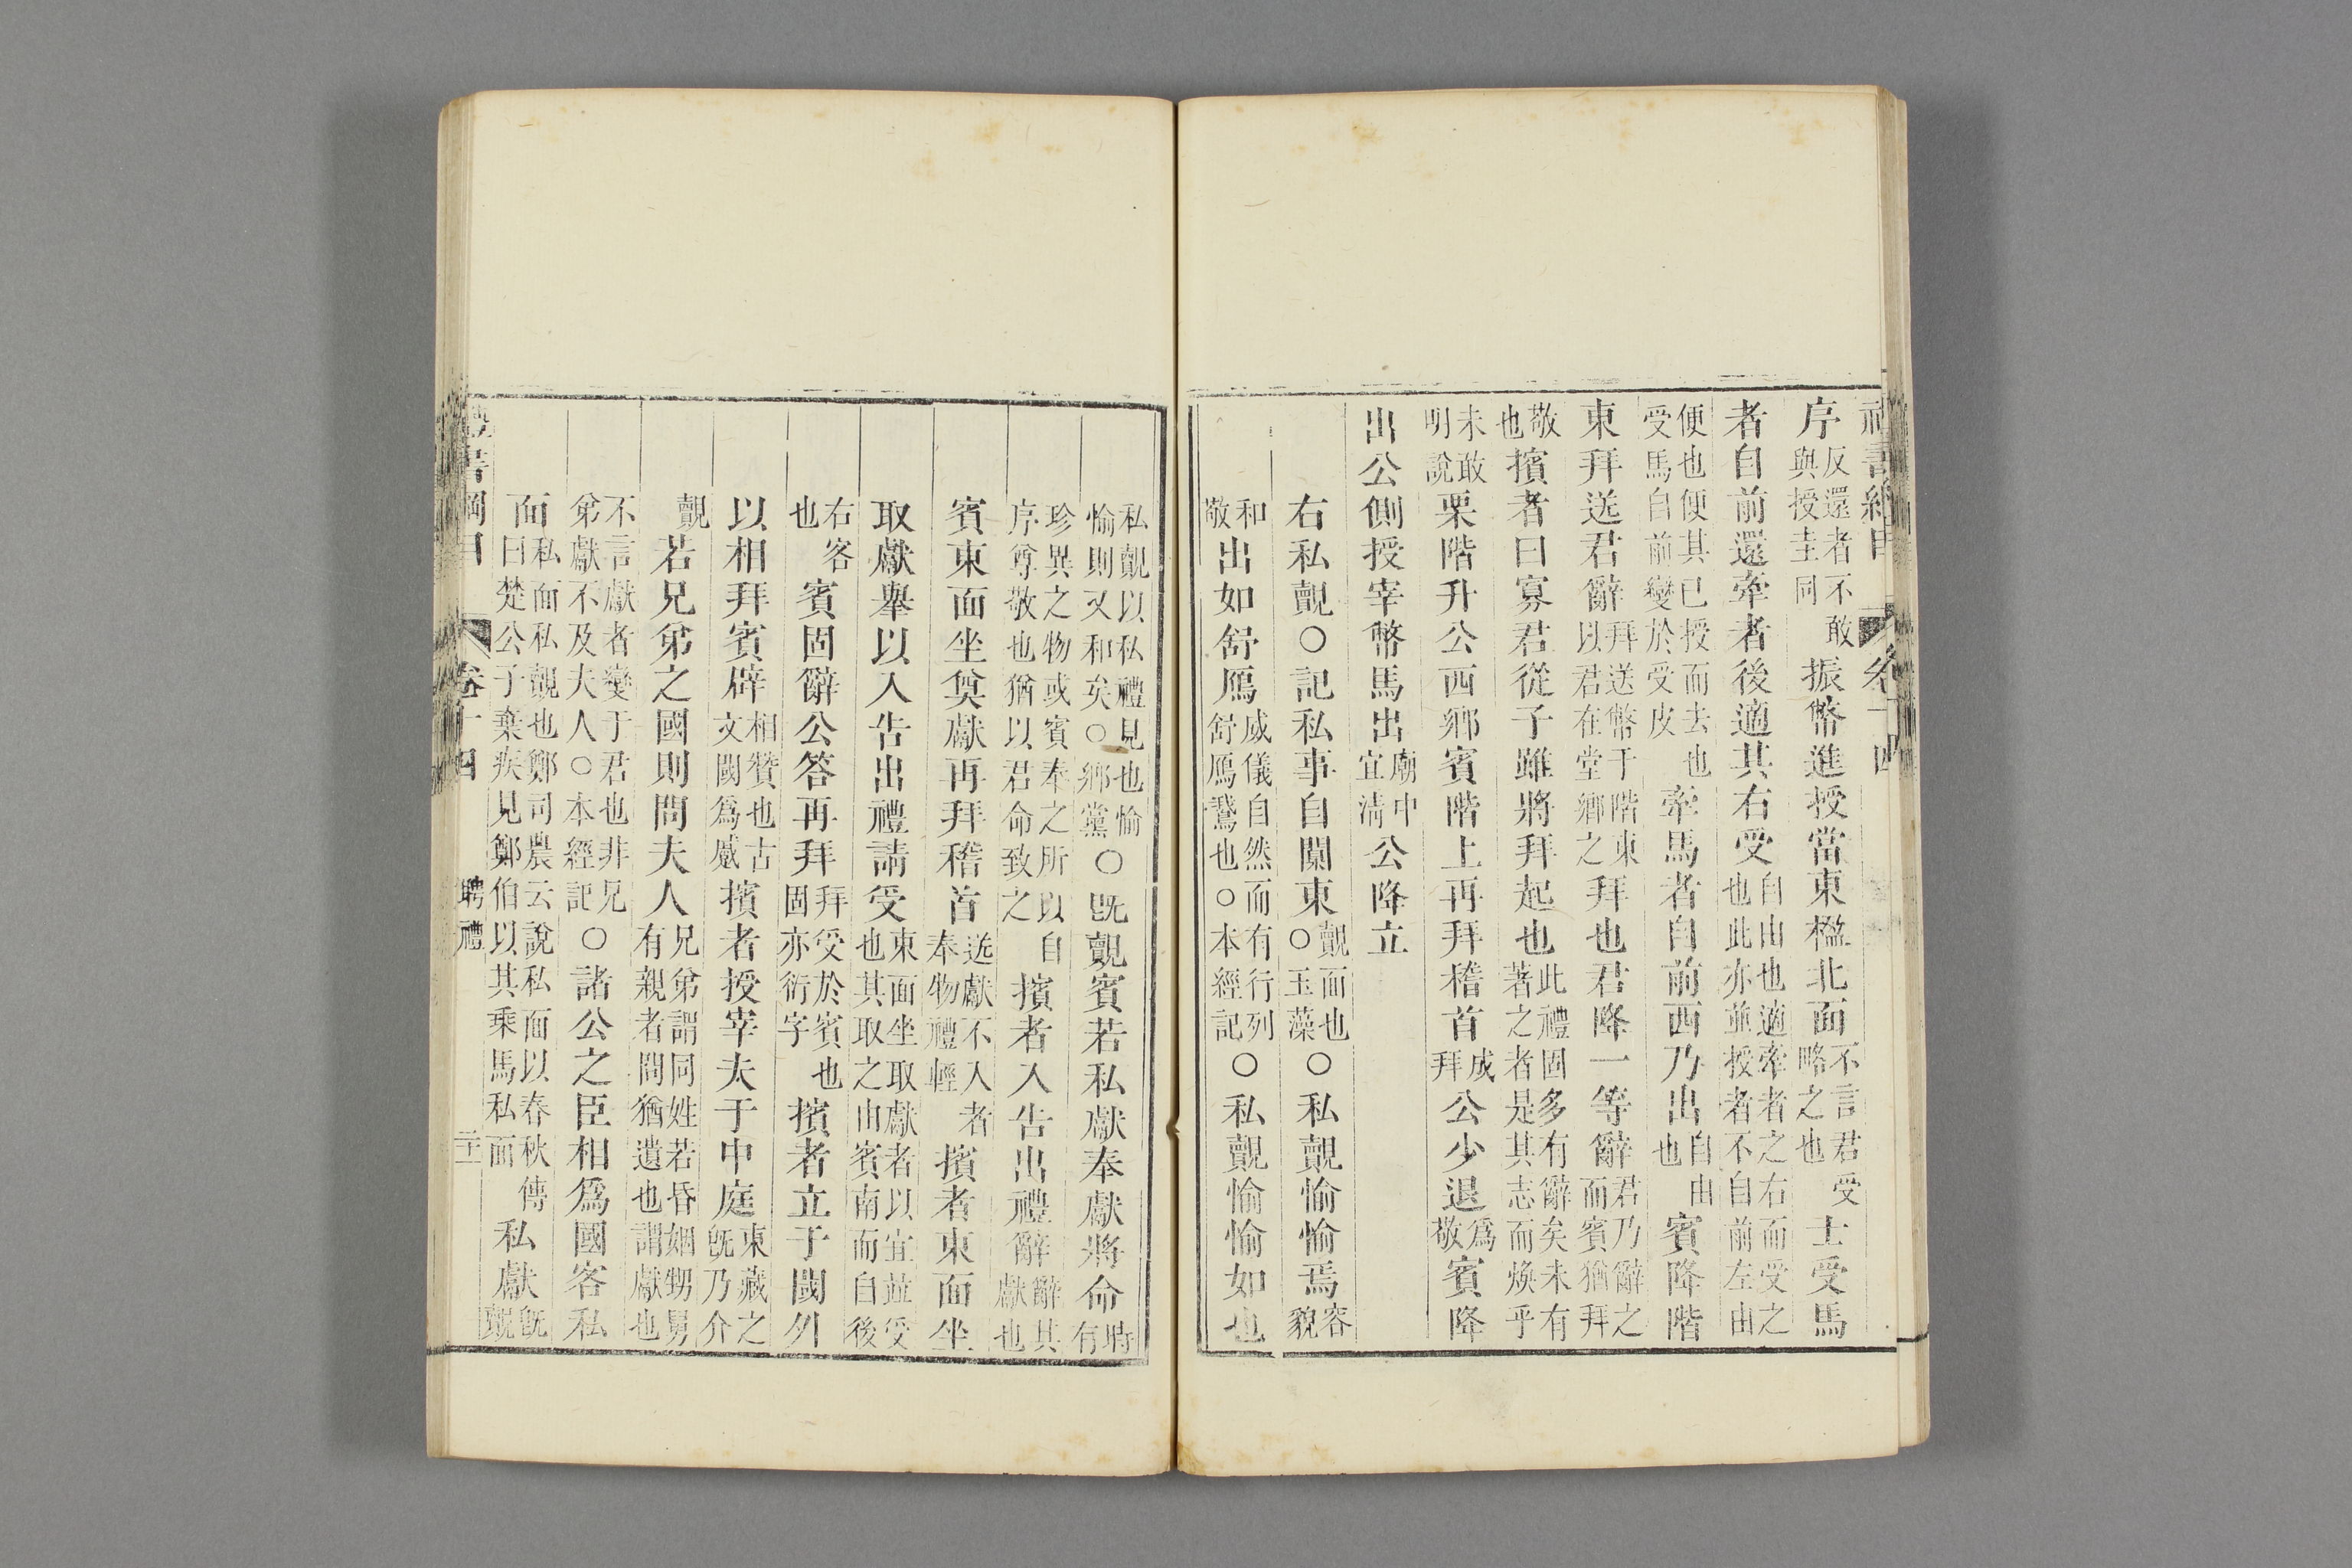 序反還者不敢與授圭同振幣進授當東楹北面不言君受略之也士受馬
者自前還牽者後適其右受自由也適牽者之右而受之也此亦並授者不自前左由
便也便其已授而去也受馬自前變於受皮牽馬者自前西乃出自由也賓降階
東拜送君辭拜送幣于階東以君在堂鄉之拜也君降一等辭君乃辭之而賓猶拜
敬也擯者曰寡君從子雖將拜起也此禮固多有辭矣未有著之者是其志而煥乎
未敢明說栗階升公西鄉賓階上再拜稽首成拜公少退爲敬賓降
出公側授宰幣馬出廟中宜清公降立
右私覿○記私事自闑東覿面也○玉藻○私覿愉愉焉容貌
和敬出如舒鴈威儀自然而有行列舒鴈鵞也○本經記○私覿愉愉如也
私覿以私禮見也愉愉則又和矣○鄉黨○旣覿賓若私獻奉獻將命時有
珍異之物或賓奉之所以自序尊敬也猶以君命致之擯者入告出禮辭辭其獻也
賓東面坐奠獻再拜稽首送獻不入者奉物禮輕擯者東面坐
取獻舉以入告出禮請受東面坐取獻者以宜並受也其取之由賓南而自後
右客也賓固辭公答再拜拜受於賓也固亦衍字擯者立于閾外
以相拜賓辟相贊也古文閾爲蹙擯者授宰夫于中庭東藏之旣乃介
覿若兄弟之國則問夫人兄弟謂同姓若昏姻甥舅有親者問猶遺也謂獻也
不言獻者變于君也非兄弟獻不及夫人○本經記○諸公之臣相爲國客私
面私面私覿也鄭司農云說私面以春秋傳曰楚公子棄疾見鄭伯以其乘馬私面私獻旣覿
卷十四 聘禮